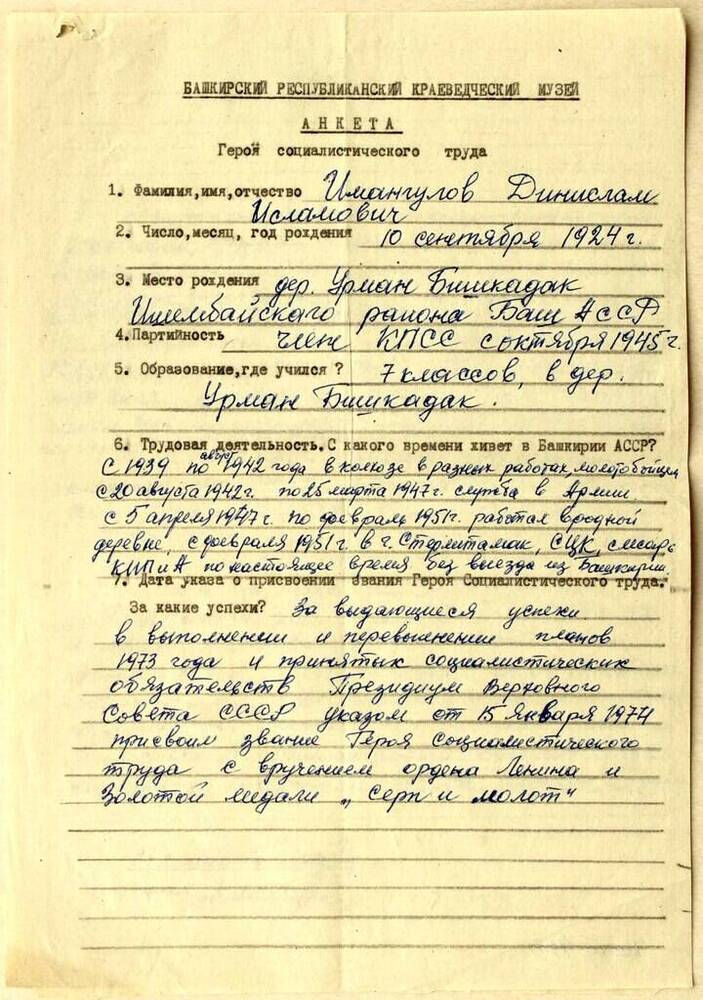 БАШКИРСКИЙ РЕСПУБЛИКАНСКИЙ КРАЕВЕДЧЕСКИЙ МУЗЕЙ
АНКЕТА
Героя социалистического труда
1. Фамилия,имя,отчество Имангулов Динислам
Исламович
2. Число,месяц, год рождения 10 сентября 1924 г.
3. Место рождения дер. Урман Бишкадак
Ишембайскаго района Баш АССР
4. Партийность член КПСС с октября 1945 г.
5. Образование,где учился? 7 классов, в дер.
Урман Бишкадак.
6. Трудовая деятельность. С какого времени живет в Башкирии АССР?
С 1939 по август 1942 года в колхозе в разных работах, молотобойцем
с 20 августа 1942 г. по 25 марта 1947 г. служба в Армии.
с 5 апреля 1947 г. по февраль 1951 г. работал в родной
деревне, с февраля 1951 г. в г. Стерлитамак, СЦК, слесарь
КИП и А по настоящее время без выезда из Башкирии.
7. Дата указа о присвоении звания Героя Социалистического труда.
За какие успехи? За выдающиеся успехи
в выполнении и перевыполнении планов
1973 года и принятых социалистических
обязательств Президиум Верховного
Совета СССР указом от 15 января 1974
присвоил звание Героя социалистического
труда с вручением ордена Ленина и
Золотой медали „Серп и молот"